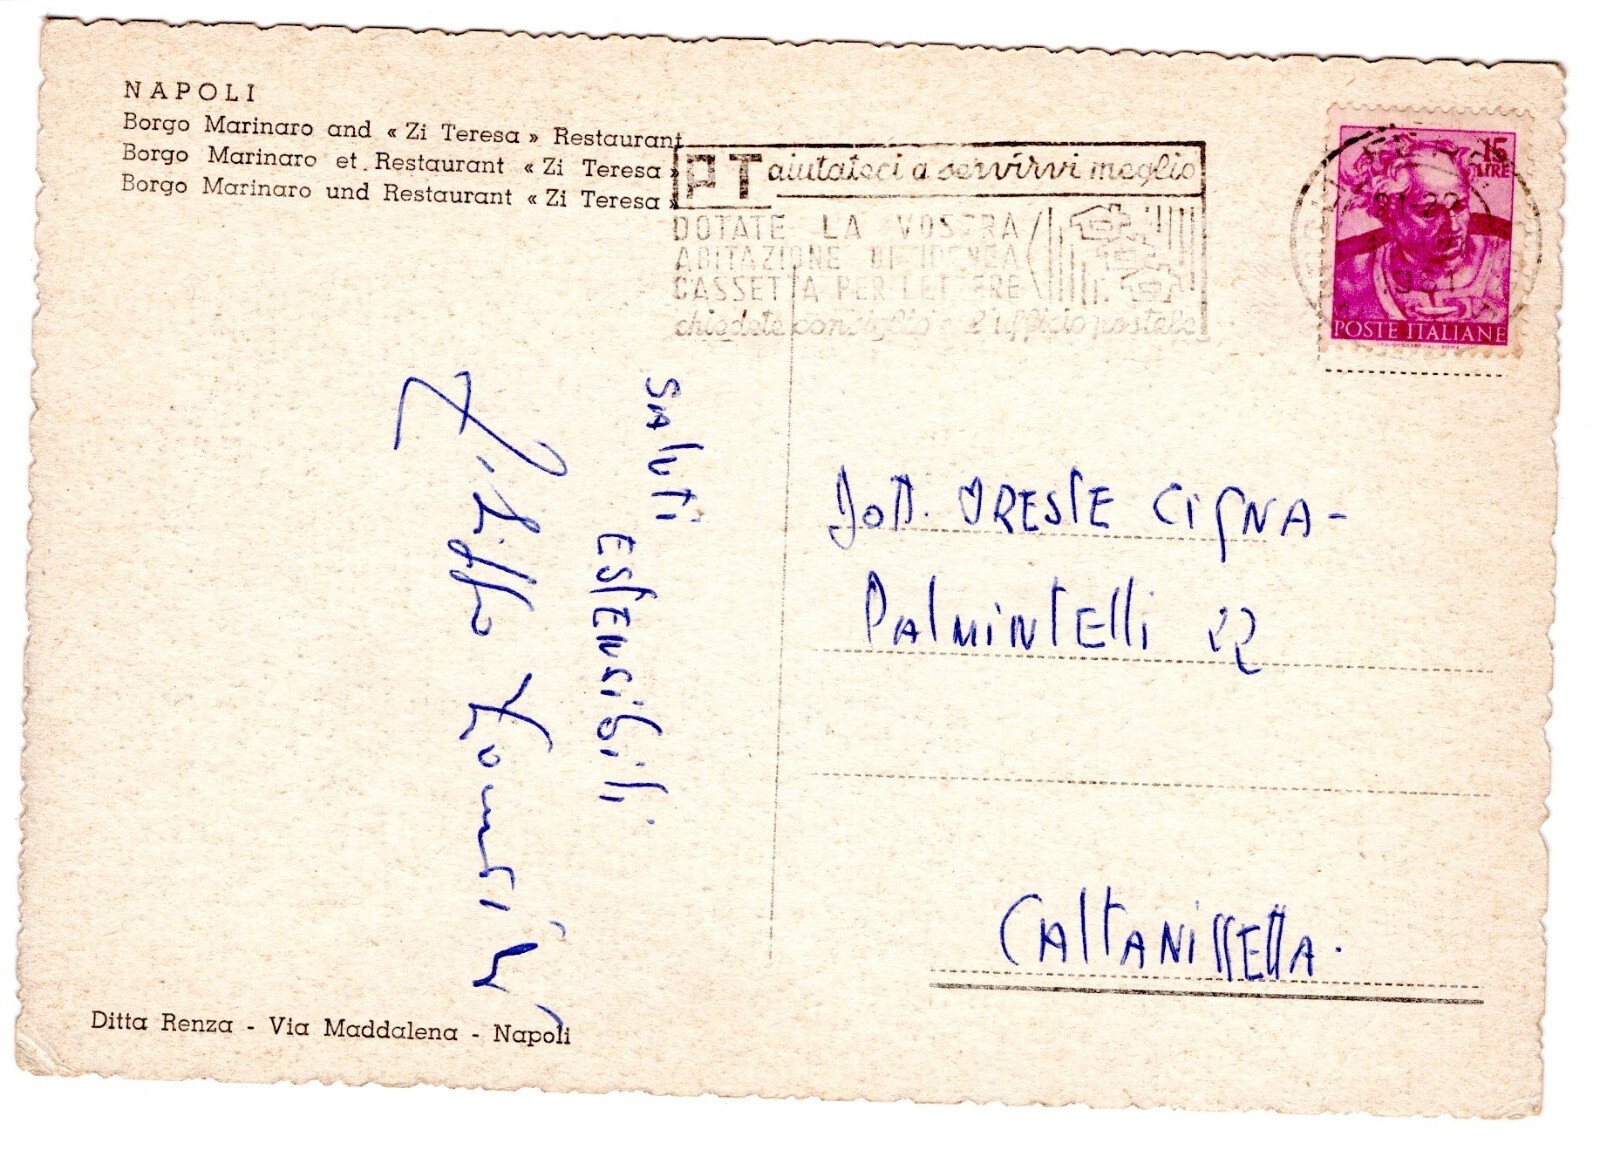 NAPOLI
Borgo Marinaro and « Zi Teresa » Restaurant
Borgo Marinaro et. Restaurant « Zi Teresa »
Borgo Marinaro und Restaurant « Zi Teresa »
PT aiutateci a servirvi meglio
DOTATE LA VOSTRA
ABITAZIONE DI IDONEA
CASSETTA PER LETTERE
chiedete consiglio all'ufficio postale
15
LIRE
POSTE ITALIANE
saluti
Dott. ORESTE CIGNA -
Palmintelli 22
CALTANISSETTA.
Ditta Renza - Via Maddalena - Napoli